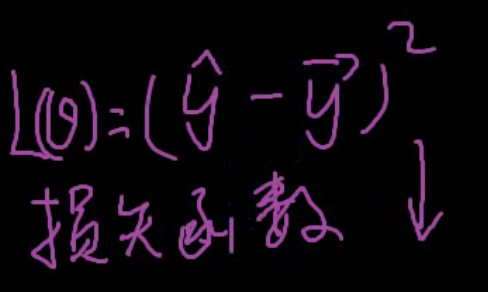 L(θ)=(ŷ-y⃗)² ↓
损失函数